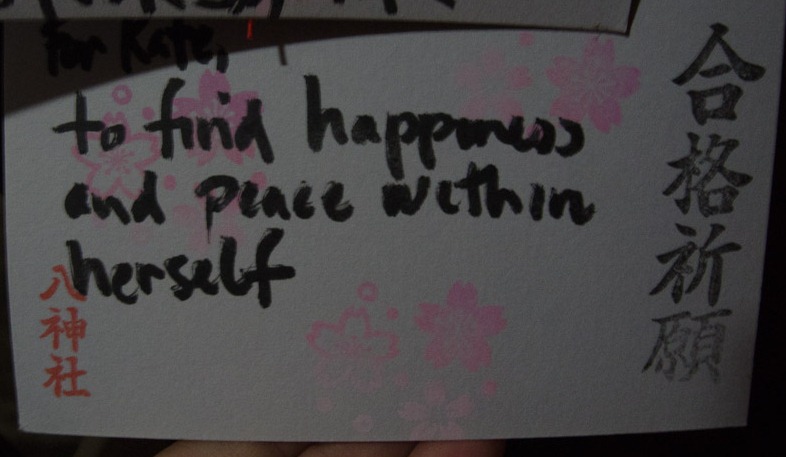 for Kate,
to find happiness
and peace within
herself
合格祈願
八神社